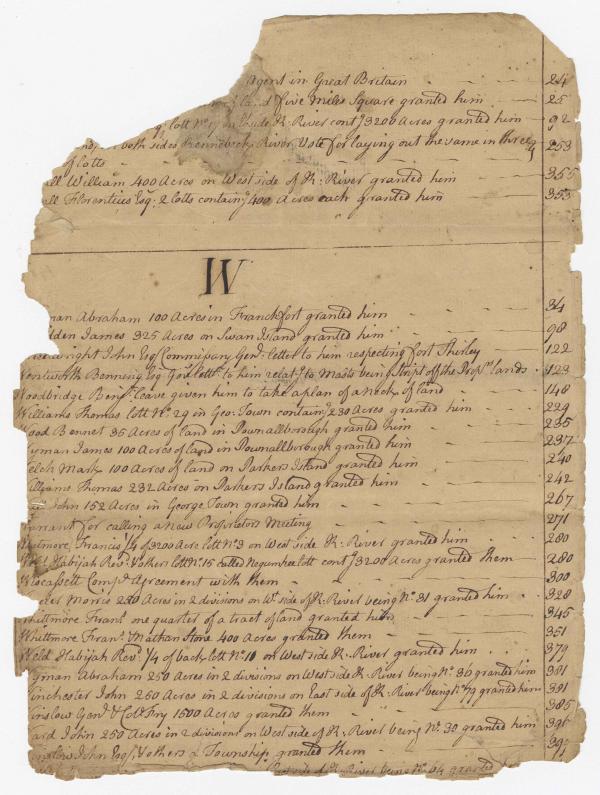 Agent in Great Britain 24
land five Miles Square granted him 25
lott No. on side K: River cont.g 3200 Acres granted him 92
both sides Kennebeck River Vote for laying out the same in three 253
of Lotts
all William 400 Acres on West side of K: River granted him 355
all Florentius Esq: 2 Lotts contain.g 400 Acres each granted him 353
W
man Abraham 100 Acres in Franckfort granted him 34
lden James 325 Acres on Swan Island granted him 98
wright John Esq. Commissary Gen.l letter to him respecting Fort Shirley 122
Wentworth Benning Esq. Gov.r lett.r to him relat.g to Masts being Stript off the Prop.rs lands 123
Woodbridge Benj.n leave given him to take a plan of a neck of land 148
Williams Thomas lott No. 29 in Geo: Town contain.g 230 Acres granted him 229
Wood Bennet 35 Acres of land in Pownallborough granted him 235
yman James 100 Acres of land in Pownallborough granted him 237
elch Mark 100 Acres of land on Parkers Island granted him 240
illiams Thomas 232 Acres on Parkers Island granted him 242
John 152 Acres in George Town granted him 267
arrant for calling a new Proprietors Meeting 271
Whitmore Francis 1/4 of 3200 Acre lott No. 3 on West side K: River granted him 280
Habijah Rev.d & others lott No. 15 called Negumkee lott cont.g 3200 Acres granted them 280
Wiscassett Comp.y Agreement with them 300
er Morris 250 Acres in 2 divisions on W.t side of K: River being No. 31 granted him 328
Whittmore Fran.s one quarter of a tract of land granted him 345
Whittmore Fran.s & Nathan Stone 400 Acres granted them 351
Weld Habijah Rev.d 1/4 of back lott No. 10 on West side K: River granted him 379
yman Abraham 250 Acres in 2 divisions on West side K: River being No. 36 granted him 381
inchester John 250 Acres in 2 divisions on East side of K: River being No. 79 granted him 381
inslow Gen.l & Col.o Fry 1500 Acres granted them 385
ard John 250 Acres in 2 divisions on West side of K: River being No. 30 granted him 396
inslow John Esq. & others a Township granted them 39
side of K: River being No. 64 granted